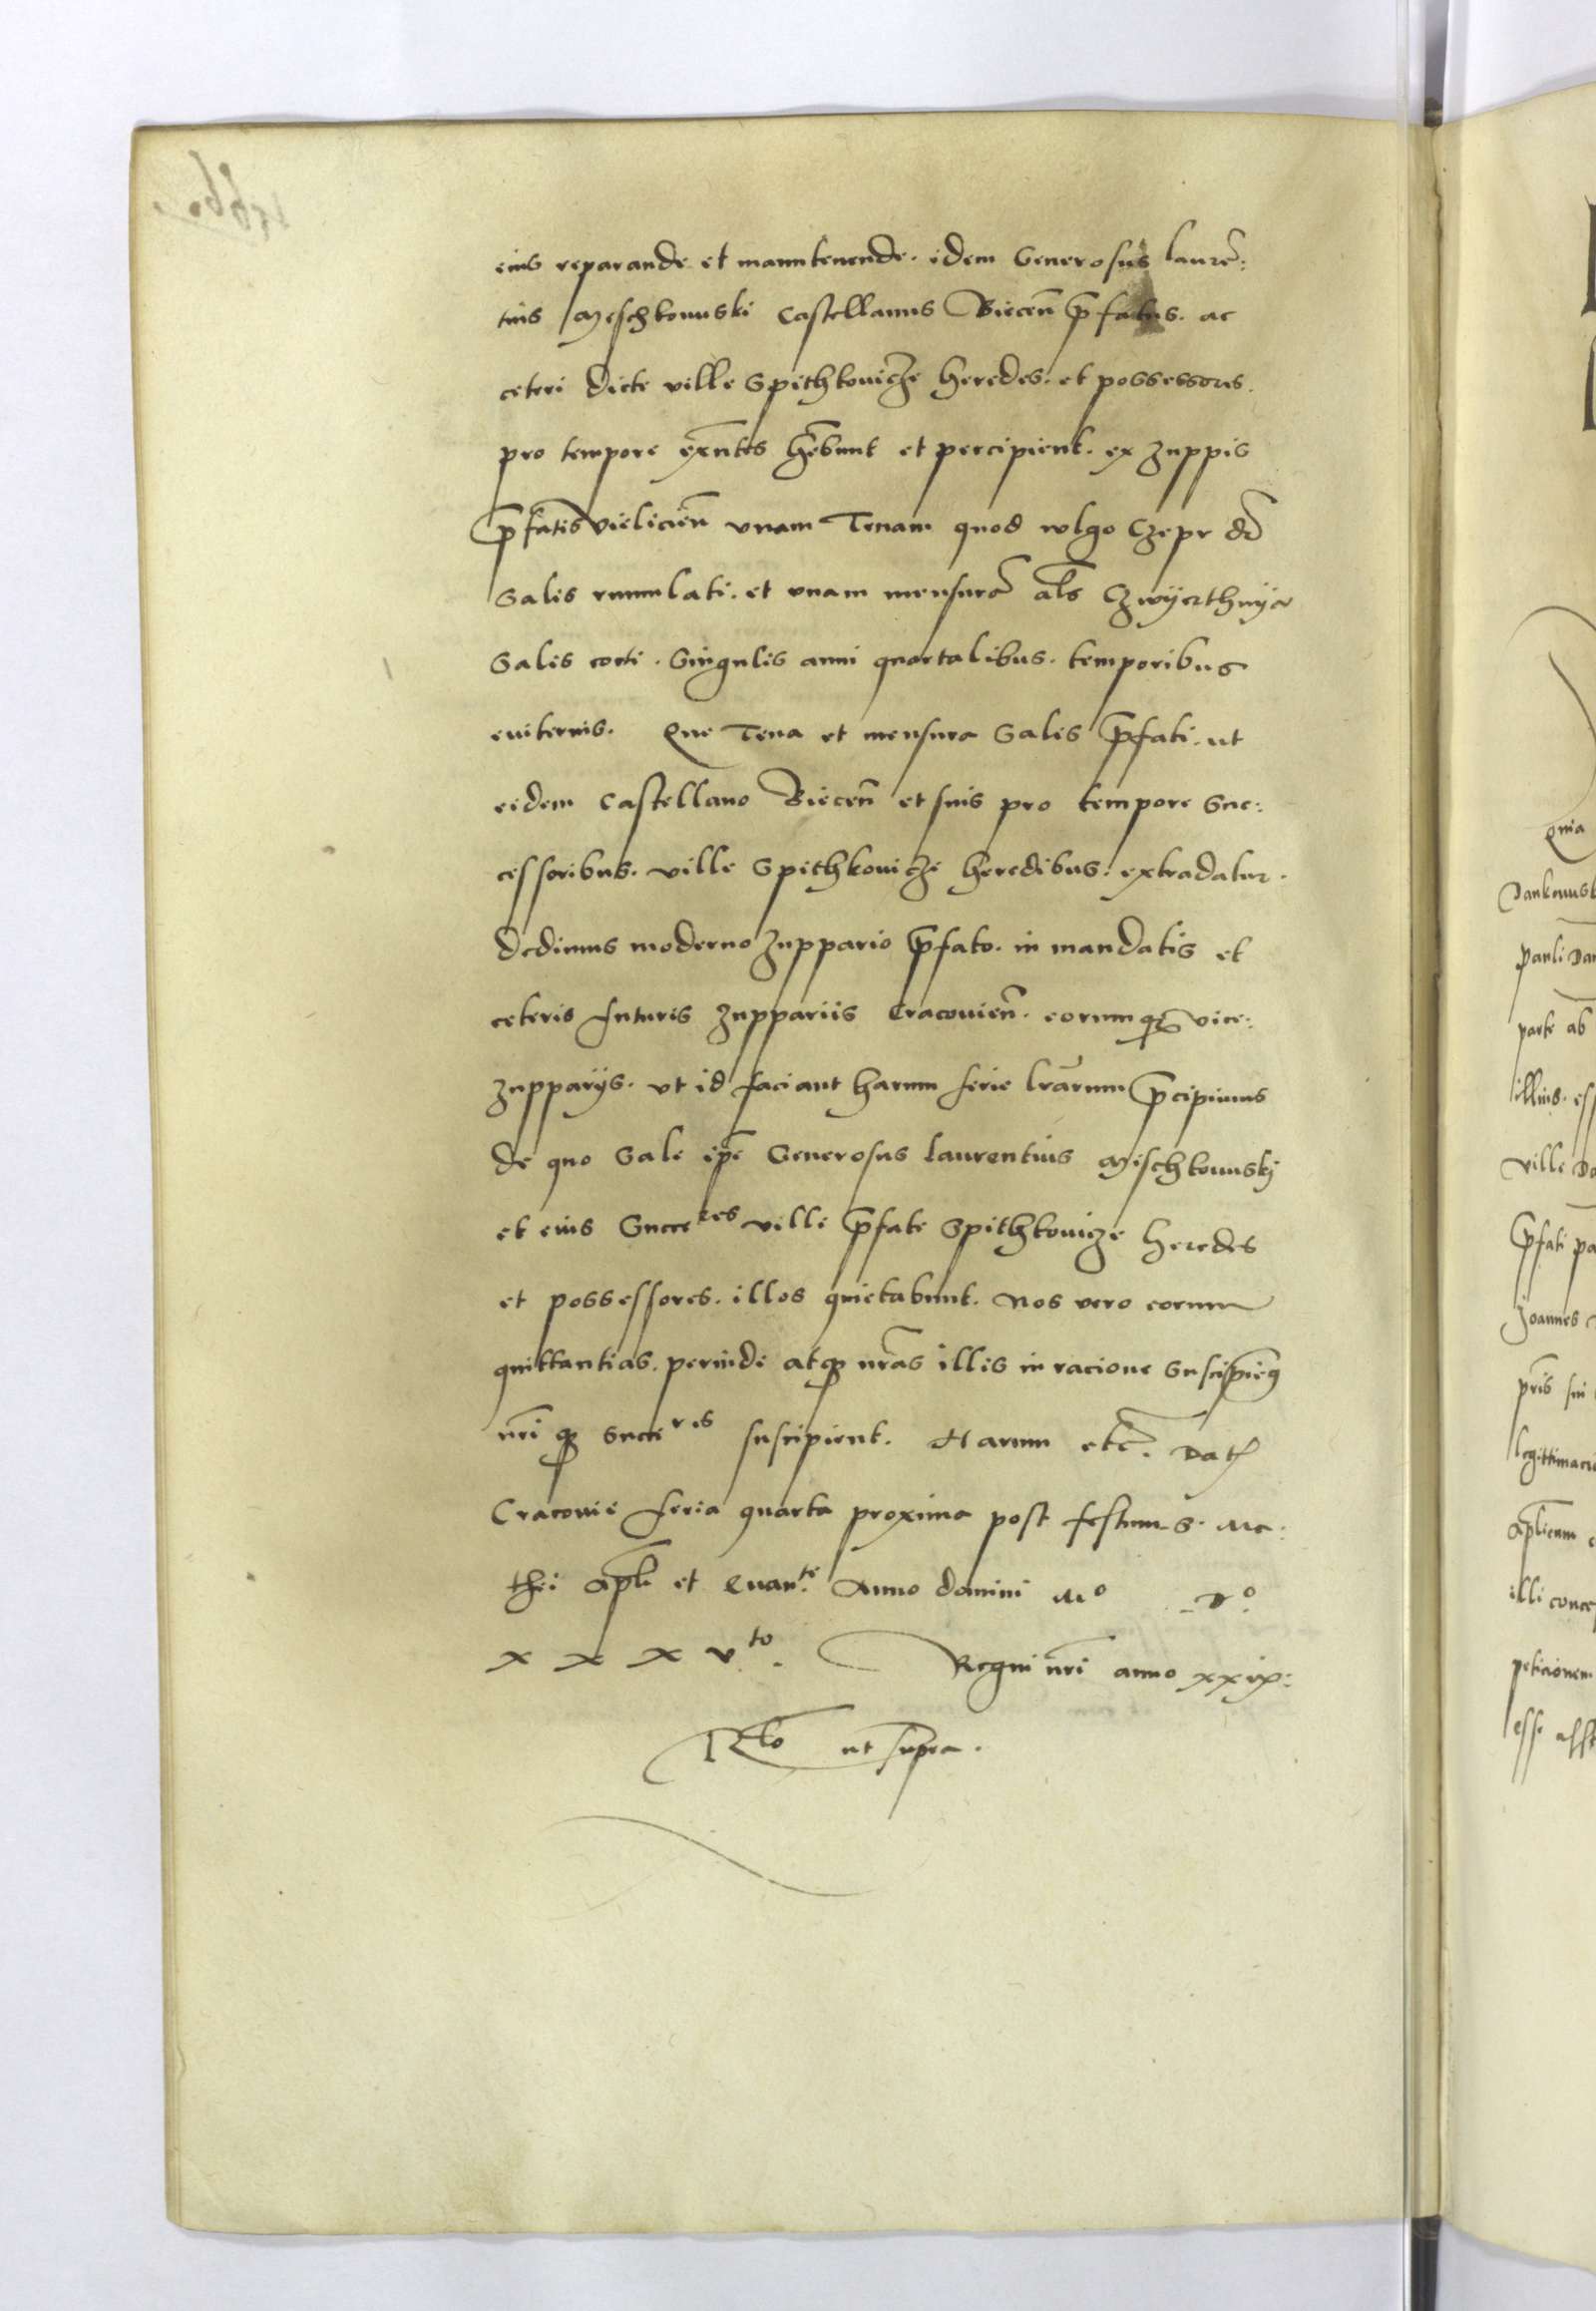 eius reparande et manutenende. idem Generosus laurẽ:
tius Myschkowski Castellanus Biecen̄ p̄fatus. ac
ceteri dicte ville Spithkowicze heredes. et possessores.
pro tempore exn̄tes hēbunt et percipient. ex zuppis
p̄fatis vielicien̄ vnam Tenam quod wlgo Czepr dr̄
Salis cumulati. et vnam mensurã als̄ Czwyerthnya
Salis cocti. Singulis anni quartalibus. temporibus
eviternis. Que Tena et mensura Salis p̄fati. ut
eidem Castellano Biecen̄ et suis pro tempore Suc:
cessoribus. ville Spithkowicze heredibus. extradatur.
dedimus moderno zuppario p̄fato. in mandatis et
ceteris futuris zuppariis Cracovien̄. eorumqꝫ vice:
zupparijs. vt id faciant harum serie lr̄arum p̄cipimus
de quo Sale ip̄e Generosus laurentius Mischkowskj
et eius Successres ville p̄fate Spithkowicze heredes
et possessores. illos quietabunt. Nos vero eorum
quittantias. perinde atqꝫ nr̄as illis in racione Suscipiem9
nr̄i qꝫ Succeres suscipient. Harum etc̄. Datꝭ
Cracovie feria quarta proxima post festum S. Ma:
thei ap̄li et Evante. Anno domini Mo Do.
x x x vto. Regni nr̄i anno xxix:
Rlo ut supra.
Quia
Dankowsk
pauli Dan
parte ab
illius. ess
ville Da
p̄fati pa
Joannes
legittimaci
illi conce
peticionem